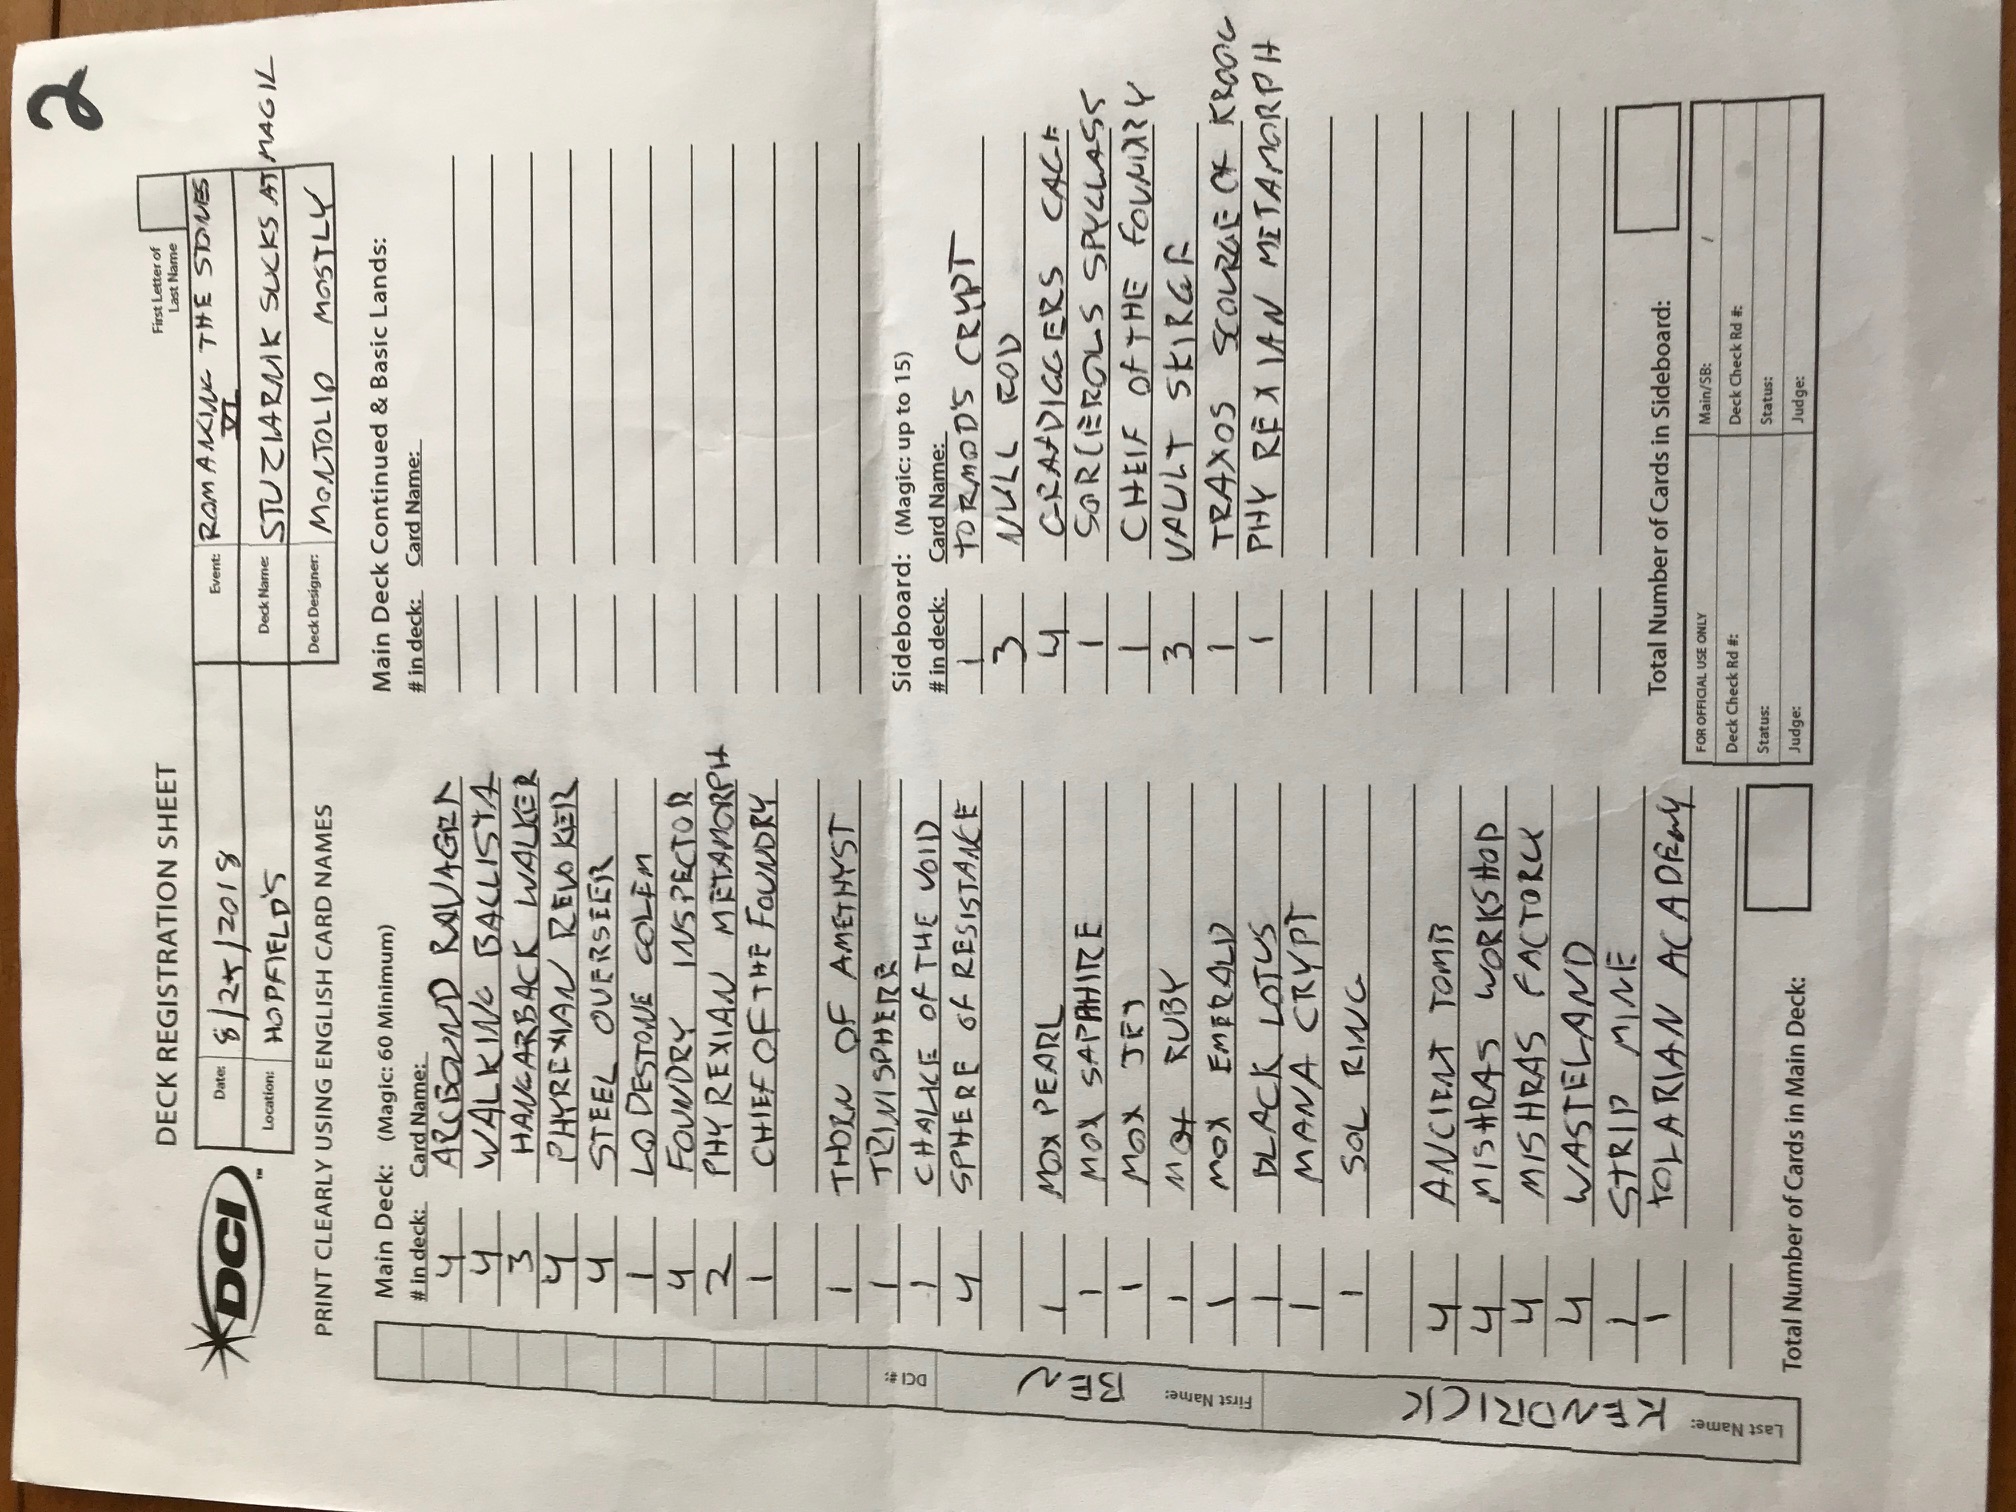 2
DECK REGISTRATION SHEET
First Letter of
Last Name
DCI
TM
Date: 8/25/2018
Location: HOPFIELD'S
Event: ROMANCING THE STONES
VI
Deck Name: STU ZIARNIK SUCKS AT MAGIC
Deck Designer: MONTOLIO MOSTLY
PRINT CLEARLY USING ENGLISH CARD NAMES
Last Name: KENDRICK First Name: BEN DCI #:
Main Deck: (Magic: 60 Minimum)
# in deck: Card Name:
4 ARCBOUND RAVAGER
4 WALKING BALLISTA
3 HANGARBACK WALKER
4 PHYREXIAN REVOKER
4 STEEL OVERSEER
1 LODESTONE GOLEM
4 FOUNDRY INSPECTOR
2 PHYREXIAN METAMORPH
1 CHIEF OF THE FOUNDRY
1 THORN OF AMETHYST
1 TRINISPHERE
1 CHALICE OF THE VOID
4 SPHERE OF RESISTANCE
1 MOX PEARL
1 MOX SAPPHIRE
1 MOX JET
1 MOX RUBY
1 MOX EMERALD
1 BLACK LOTUS
1 MANA CRYPT
1 SOL RING
4 ANCIENT TOMB
4 MISHRAS WORKSHOP
4 MISHRAS FACTORY
4 WASTELAND
1 STRIP MINE
1 TOLARIAN ACADEMY
Total Number of Cards in Main Deck:
Main Deck Continued & Basic Lands:
# in deck: Card Name:
Sideboard: (Magic: up to 15)
# in deck: Card Name:
1 TORMOD'S CRYPT
3 NULL ROD
4 GRAFDIGGERS CAGE
1 SORCEROUS SPYGLASS
1 CHEIF OF THE FOUNDRY
3 VAULT SKIRGE
1 TRAXOS SCOURGE OF KROOG
1 PHYREXIAN METAMORPH
Total Number of Cards in Sideboard:
FOR OFFICIAL USE ONLY
Main/SB: /
Deck Check Rd #:
Deck Check Rd #:
Status:
Status:
Judge:
Judge: